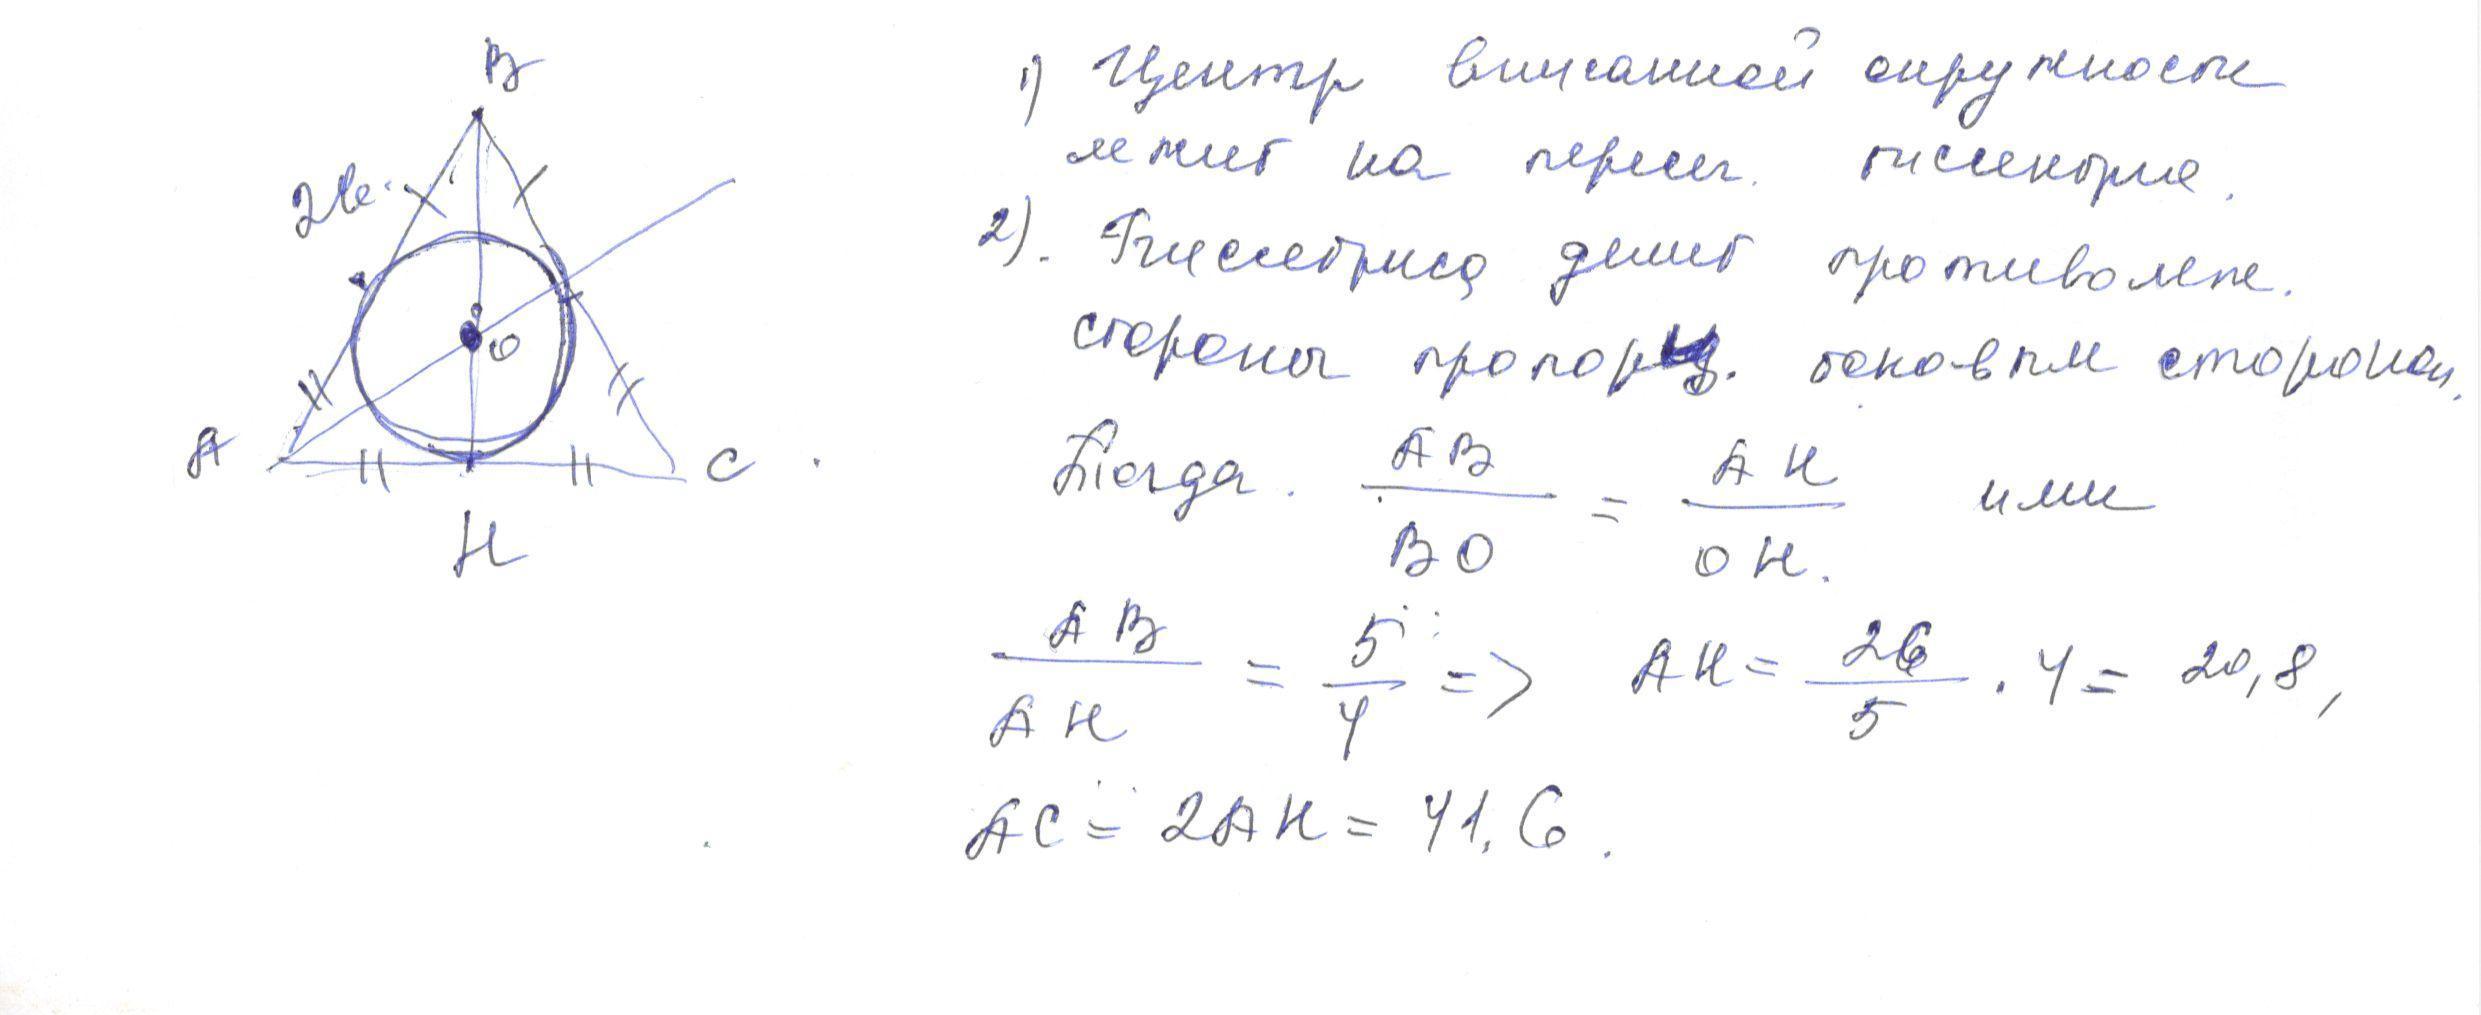 B
26
O
A
C
H
1) Центр вписанной окружности
лежит на пересеч. биссектрис.
2). Биссектриса делит противолеж.
стороны пропорц. боковым сторонам.
Тогда. AB/BO = AH/OH. или
AB/AH = 5/4 => AH = 26/5 · 4 = 20,8,
AC = 2AH = 41,6.